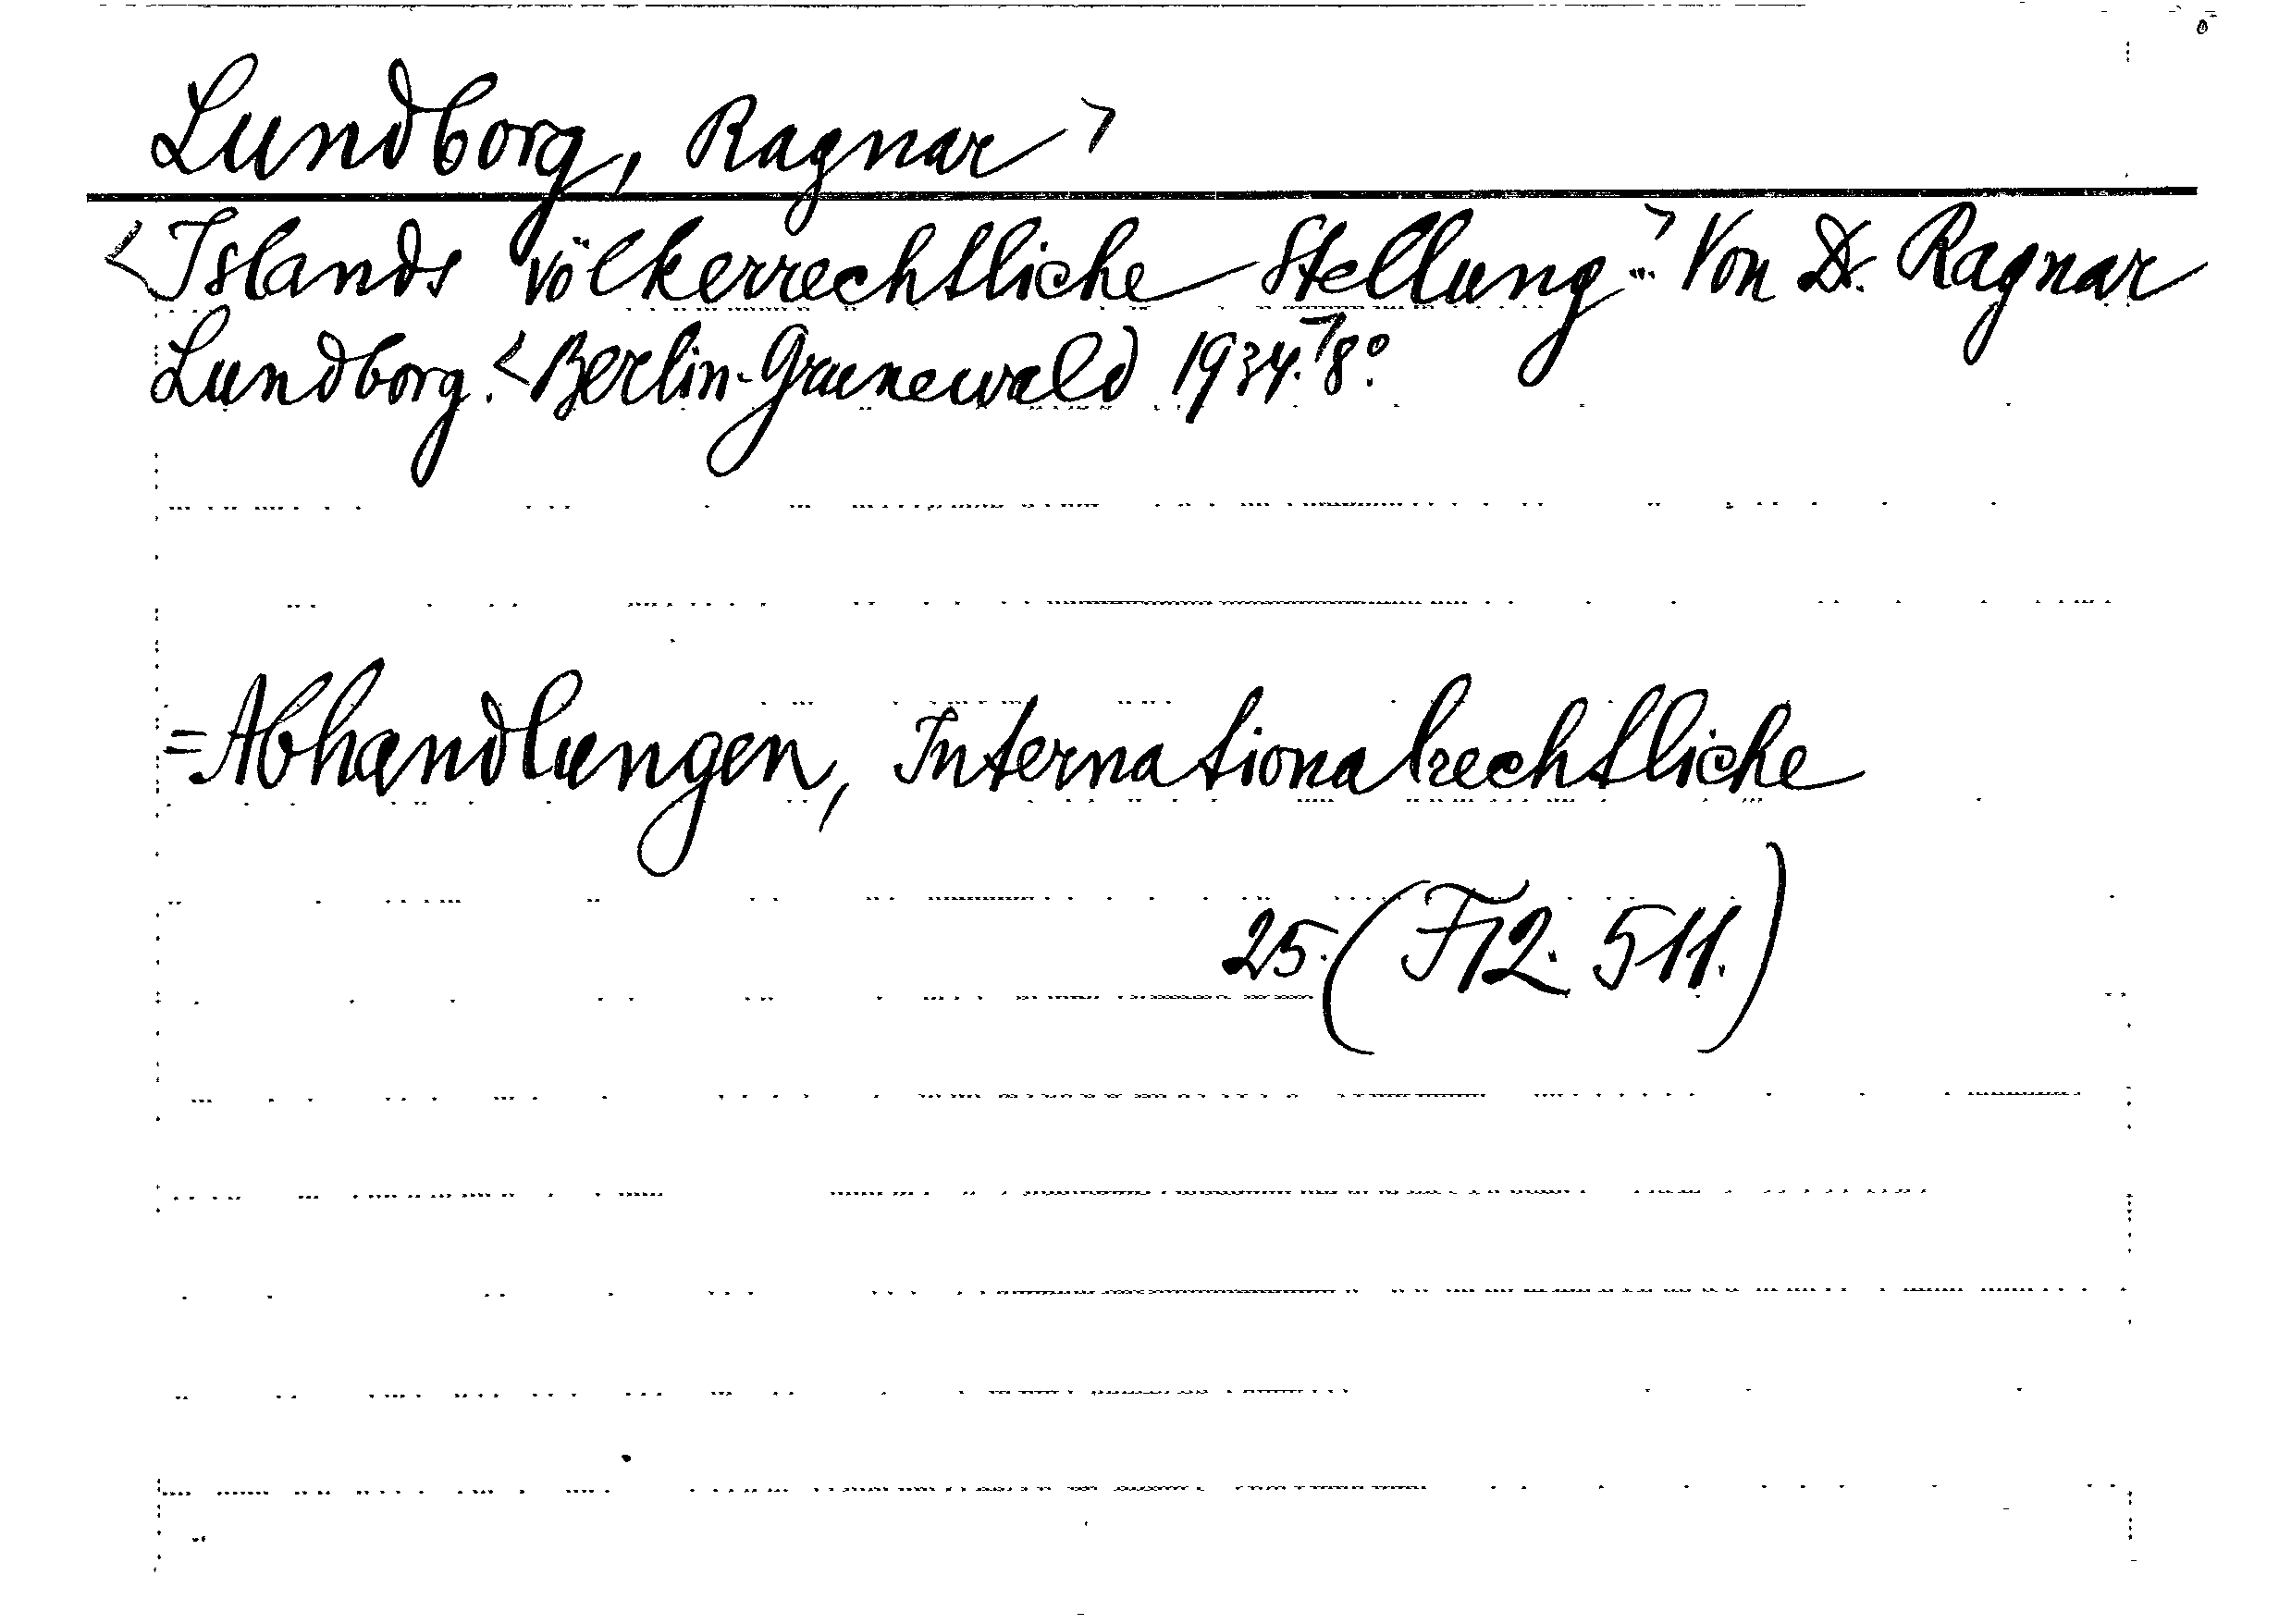 Lundborg, Ragnar>
<Islands völkerrechtliche Stellung...> Von Dr. Ragnar
Lundborg. <Berlin-Grunewald 1934.> 8°.
=Abhandlungen, Internationalrechtliche
25. (F12. 511.)